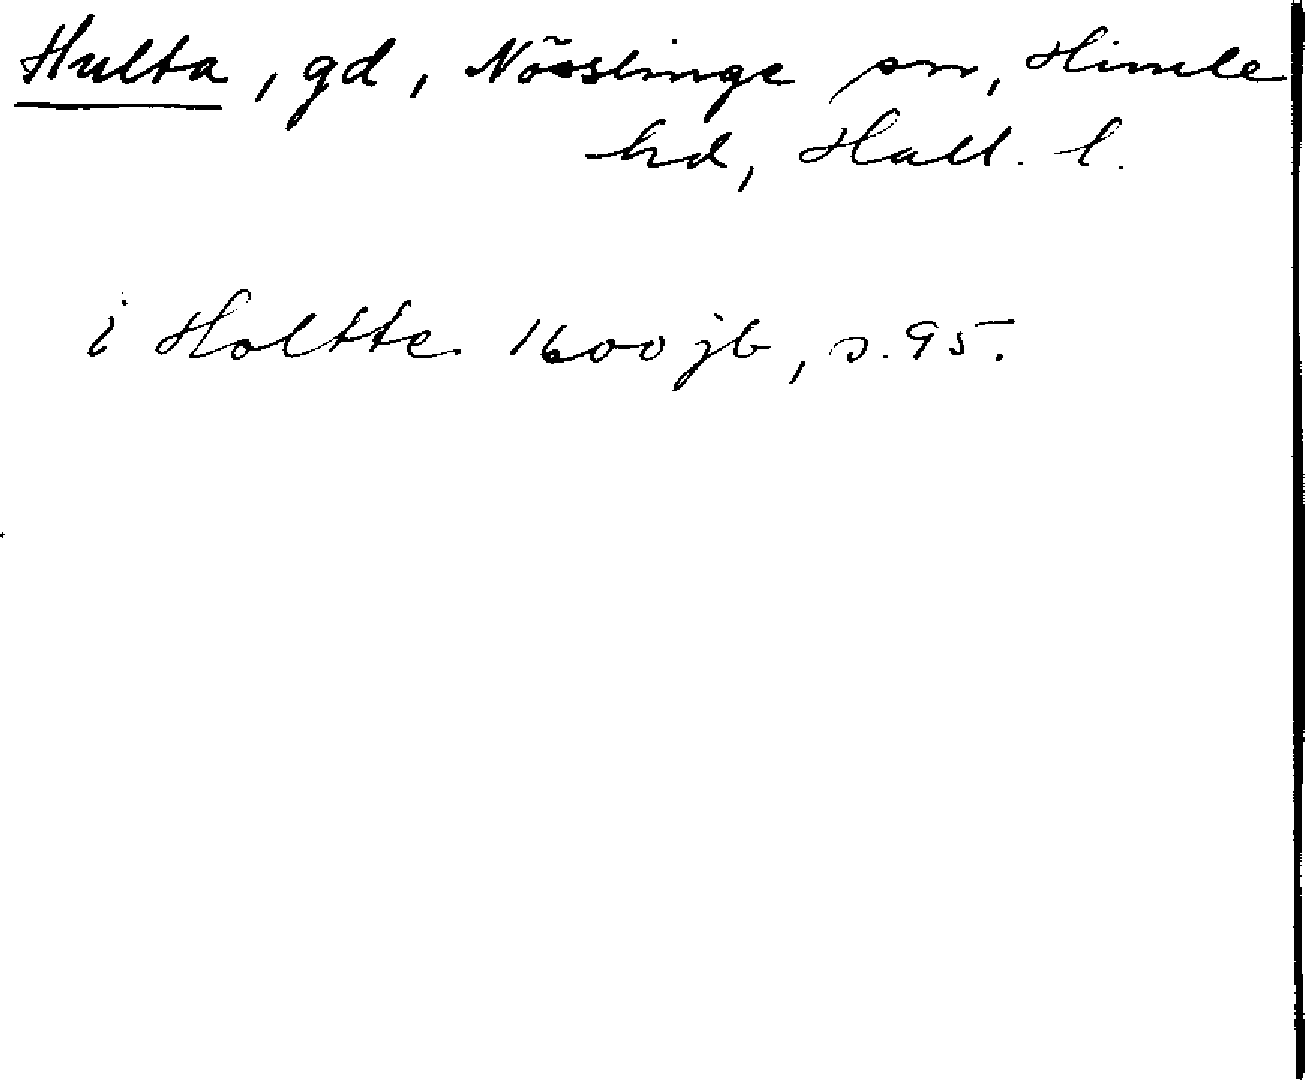 Hulta, gd, Nösslinge sn, Himle
hd, Hall. l.
i Holtte 1600 jb, s. 95.